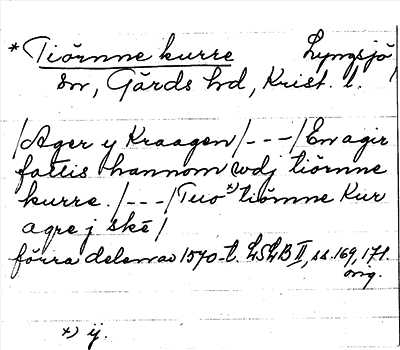 * Tiörnne kurre Lyngsjö
sn, Gärds hd, Krist. l.
/Ager y Kraagen/---/En agir
fattis hannom wdj tiörnne
kurre./---/Tuo *) tiömne Kur
agre j skē/
förra delen av 1570-t. LSLB II, ss. 169, 171.
orig.
*) ij.